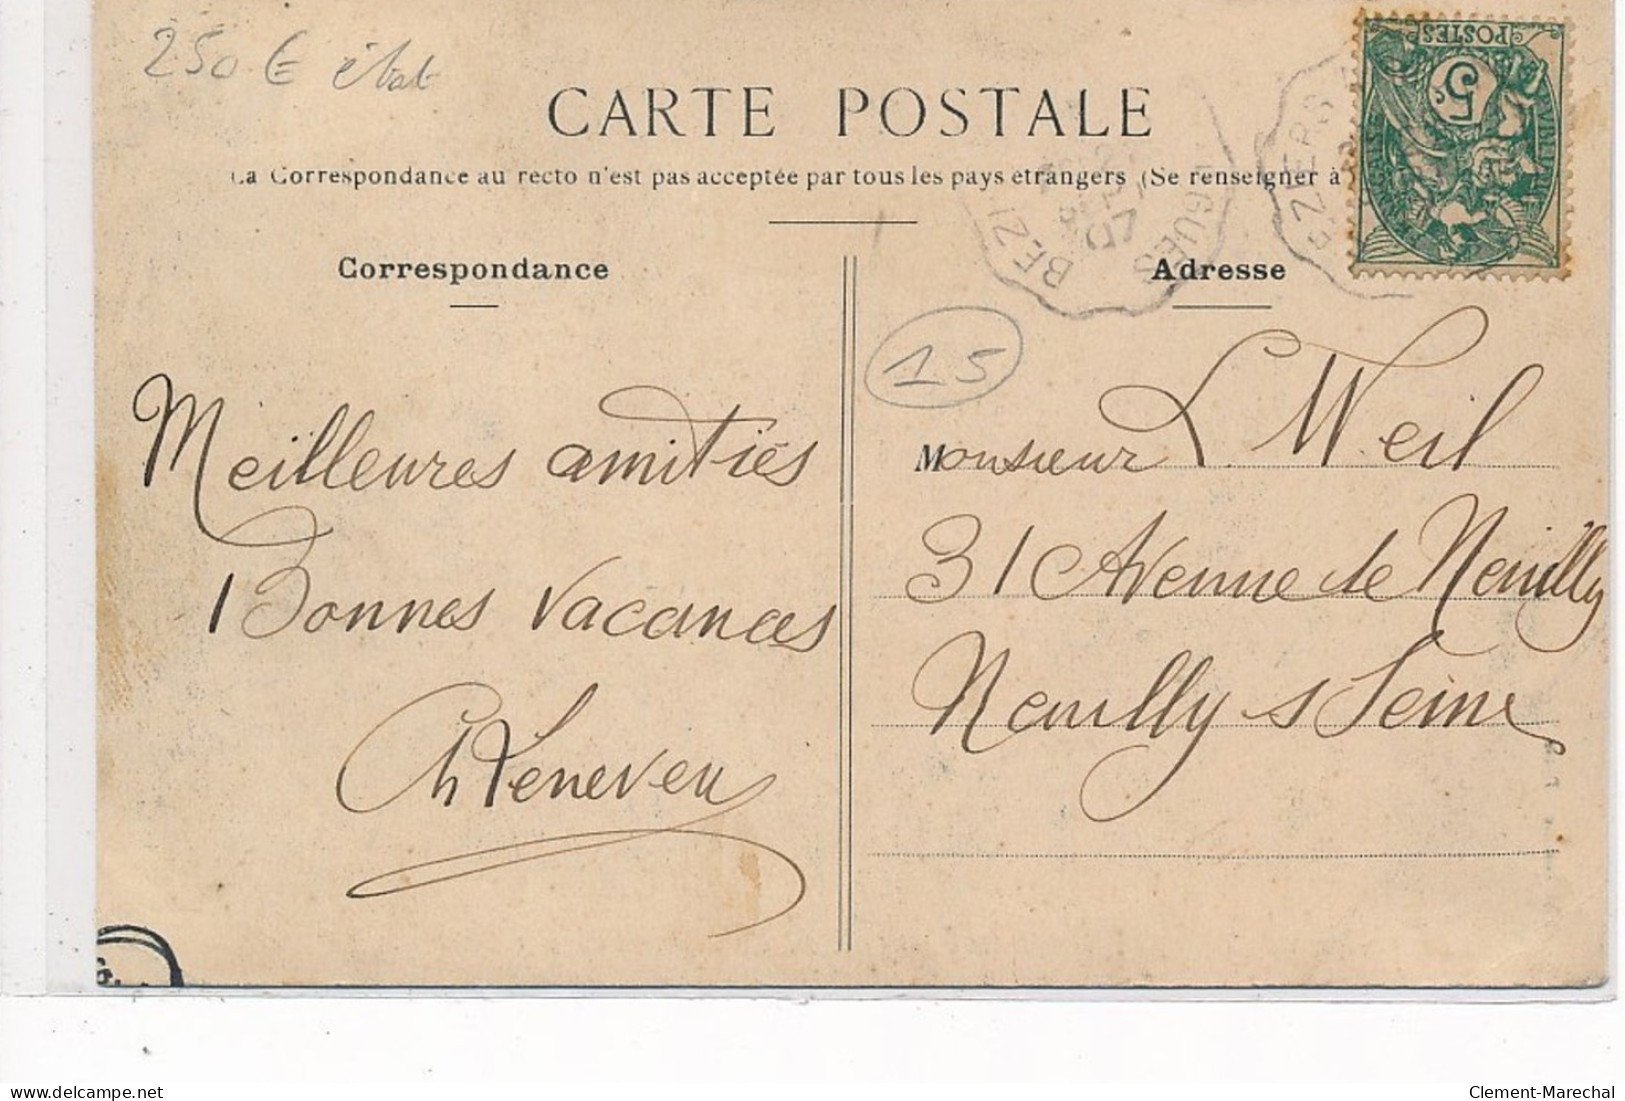 250 € état
CARTE POSTALE
La Correspondance au recto n'est pas acceptée par tous les pays étrangers (Se renseigner à
POSTES
5c
BEZI
GUES
07
BEZIERS
Correspondance
Adresse
15
Meilleures amitiés
Bonnes vacances
Ch Leneveu
Monsieur L. Weil
31 Avenue de Neuilly
Neuilly s Seine
G.
Clement-Marechal